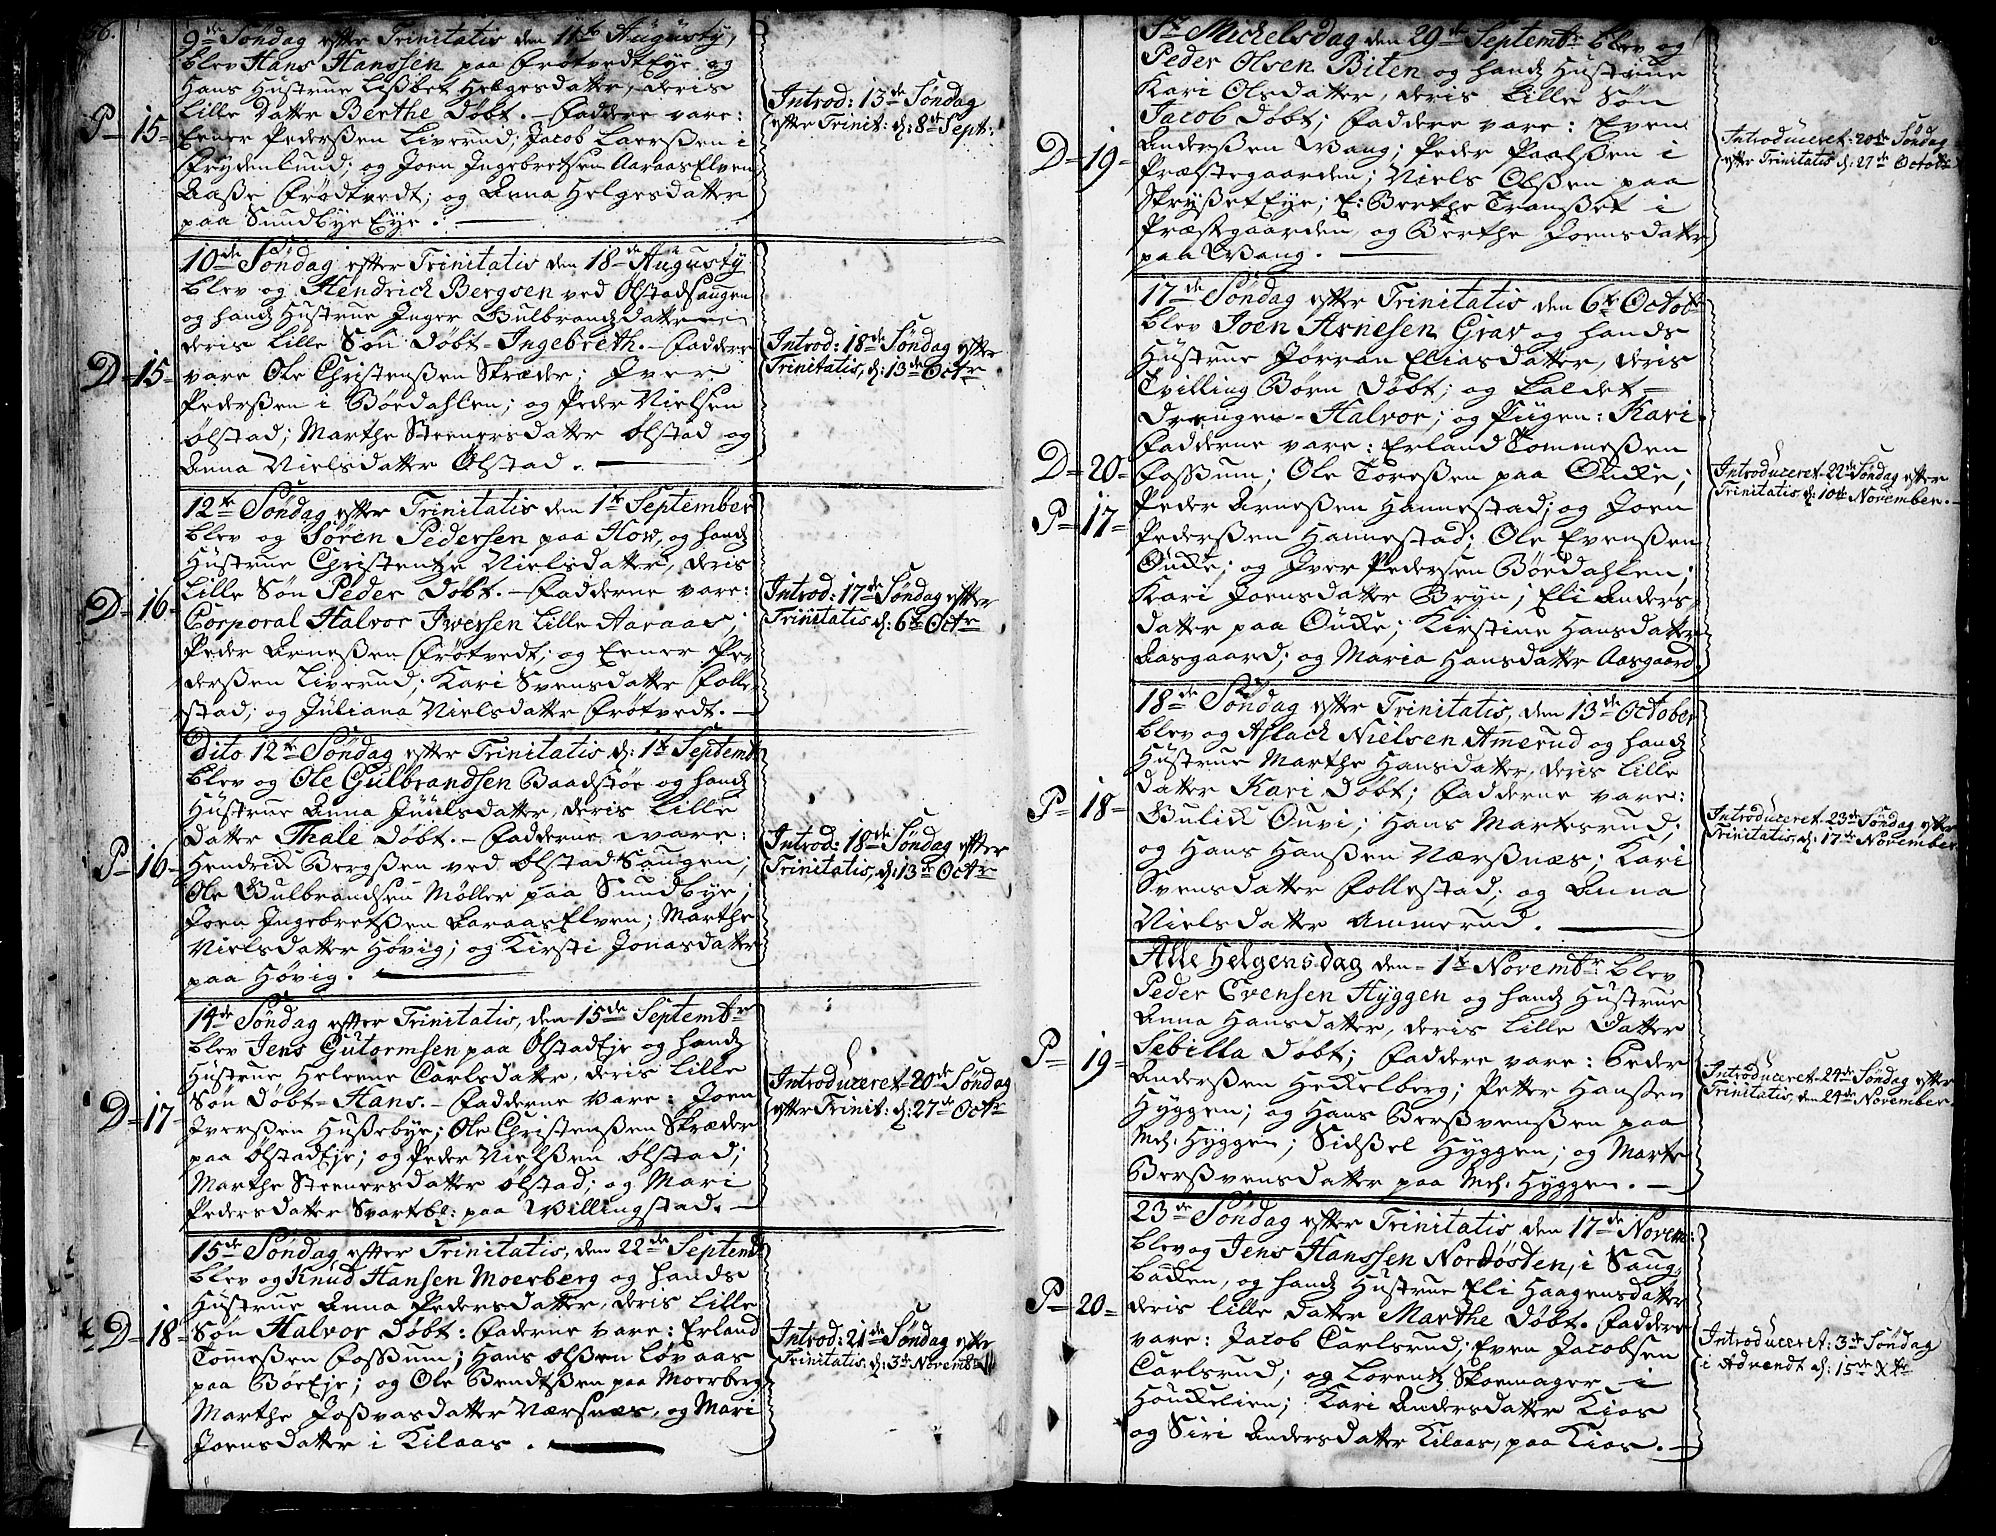 56.
9de Søndag efter Trinitatis den 11te Augusty,
blev Hans Hanssen paa Frøtvedt Eye, og
Hans Hustrue Lisbet Helgesdatter, deris
Lille Datter Berthe Døbt. – Faddere vare:
P 15 Eener Pederssen Liverud; Jacob Laerssen i
Frydenlund; og Joen Ingebretsen Aaraas Elven
Aasse Frødtvedt; og Anna Helgesdatter
paa Sundbye Eye.
Introd: 13de Søndag
efter Trinit: d: 8de Sept:
10de Søndag efter Trinitatis den 18de Augusty
blev og Hendrich Bergsen ved Ølstad Saugen
og hands Hustrue Inger Gulbrandsdatter
deris Lille Søn Døbt – Ingebreth. – Faddere
D 15 vare Ole Christenssen Skræder; Iver
Pederssen i Bøedahlen; og Peder Nielsen
Ølstad; Marthe Steenersdatter Ølstad og
Anna Nielsdatter Ølstad.
Introd: 18de Søndag efter
Trinitatis, d: 13de Octr
12te Søndag efter Trinitatis den 1te September
blev og Søren Pedersen paa How, og hands
Hustrue Christentze Nielsdatter, deris
Lille Søn Peder Døbt. – Fadderne vare:
D 16 Corporal Halvor Iversen Lille Aaraas;
Peder Arnessen Frøtvedt; og Eener Pe-
derssen Liverud; Kari Svensdatter Folle-
stad; og Juliana Nielsdatter Frøtvedt. –
Introd: 17de Søndag efter
Trinitatis d: 6te Octr
Dito 12te Søndag efter Trinitatis d: 1te Septemb
blev og Ole Gulbrandsen Baadstøe og hands
Hustrue Anna Juulsdatter, deris Lille
Datter Thale Døbt. – Fadderne vare:
P 16 Hendrich Bergssen ved Ølstad Saugen;
Ole Gulbrandsen Møller paa Sundbye;
Joen Ingebretssen Aaraas Elven; Marthe
Nielsdatter Høvig; og Kirsti Jonasdatter
paa Høvig.
Introd: 18de Søndag efter
Trinitatis, d: 13de Octr
14de Søndag efter Trinitatis, den 15de Septembr
blev Jens Gutormsen paa Ølstad Eje og hands
Hustrue Heleene Carlsdatter, deris Lille
Søn Døbt – Hans. – Fadderne vare: Joen
D 17 Iverssen Hussebye; Ole Christenssen Skræder
paa Ølstad Eje; og Peder Nielssen Ølstad;
Marthe Steenersdatter Ølstad; og Mari
Pedersdatter Svartebl: paa Willingstad. –
Introduceret 20de Søndag
efter Trinit: d: 27de Octr
15de Søndag efter Trinitatis, den 22de Septemb
blev og Knud Hansen Moerberg og hands
Hustrue Anna Pedersdatter, deris Lille
D 18 Søn Halvor Døbt: Faderne vare: Erland
Tommessen Fossum; Hans Olssen Løvaas
paa Bøe Eje; og Ole Bendtssen paa Moerberg
Marthe Jossvasdatter Nærsnæs, og Mari
Joensdatter i Kilaas.
Introd: 21de Søndag efter
Trinitatis: d: 3de Novemb
St Michelsdag den 29de Septembr blev og
Peder Olsen Biten og hands Hustrue
Kari Olsdatter, deris Lille Søn
Jacob Døbt; Faddere vare: Even
D 19 Anderssen Wang; Peder Paalssen i
Præstegaarden; Niels Olssen paa
Skrysset Eye; E: Berthe Transset i
Præstgaarden og Berthe Joensdatter
paa Wang.
Introduceret 20de Søndag
efter Trinitatis d: 27de Octobr
17de Søndag efter Trinitatis den 6te Octob
blev Joen Arnesen Grav og hands
Hustrue Jørran Eliasdatter, deris
Tvilling Børn Døbt; og kaldet
Drengen – Halvor; og Pigen: Kari.
Fadderne vare: Erland Tommessen
D 20 Fossum; Ole Toressen paa Ouke;
P 17 Peder Arnessen Hannestad; og Joen
Pederssen Hannestad; Ole Evenssen
Ouke; og Iver Pedersen Bøedahlen;
Kari Joensdatter Bryn; Eli Anders-
datter paa Ouke; Kirstine Hansdatter
Aasgaard; og Maria Hansdatter Aasgaard
Introduceret 22de Søndag efter
Trinitatis d: 10de November.
18de Søndag efter Trinitatis, den 13de October
blev og Aslach Nielsen Amerud og hands
Hustrue Marthe Hansdatter, deris Lille
P 18 Datter Kari Døbt; Fadderne vare:
Gulik Ouvi; Hans Martesrud;
og Hans Hanssen Nærssnæs; Kari
Svensdatter Follestad; og Anna
Nielsdatter Ammerud.
Introduceret 23de Søndag efter
Trinitatis, d: 17de November
Alle Helgensdag den 1te Novembr blev
Peder Evensen Hyggen og hands Hustrue
Anna Hansdatter, deris Lille Datter
P 19 Sebilla Døbt; Faddere vare: Peder
Anderssen Heckelberg; Petter Hanssen
Hyggen; og Hans Berssvenssen paa
Mel: Hyggen; Sidssel Hyggen; og Marte
Berssvensdatter paa Mel: Hyggen. –
Introduceret 24de Søndag efter
Trinitatis, den 24de November.
23de Søndag efter Trinitatis den 17de Novem:
blev og Jens Hanssen Nordøsten, i Saug-
backen, og hands Hustrue Eli Haagensdatter
P 20 deris lille Datter Marthe Døbt. Faddere
vare: Jacob Carlsrud; Even Jacobsen
Carlsrud; og Lorentz Skoemager i
Houkelien; Kari Andersdatter Kios
og Siri Andersdatter Kilaas, paa Kios. –
Introduceret: 3de Søndag
i Advendt d: 15de Xbr